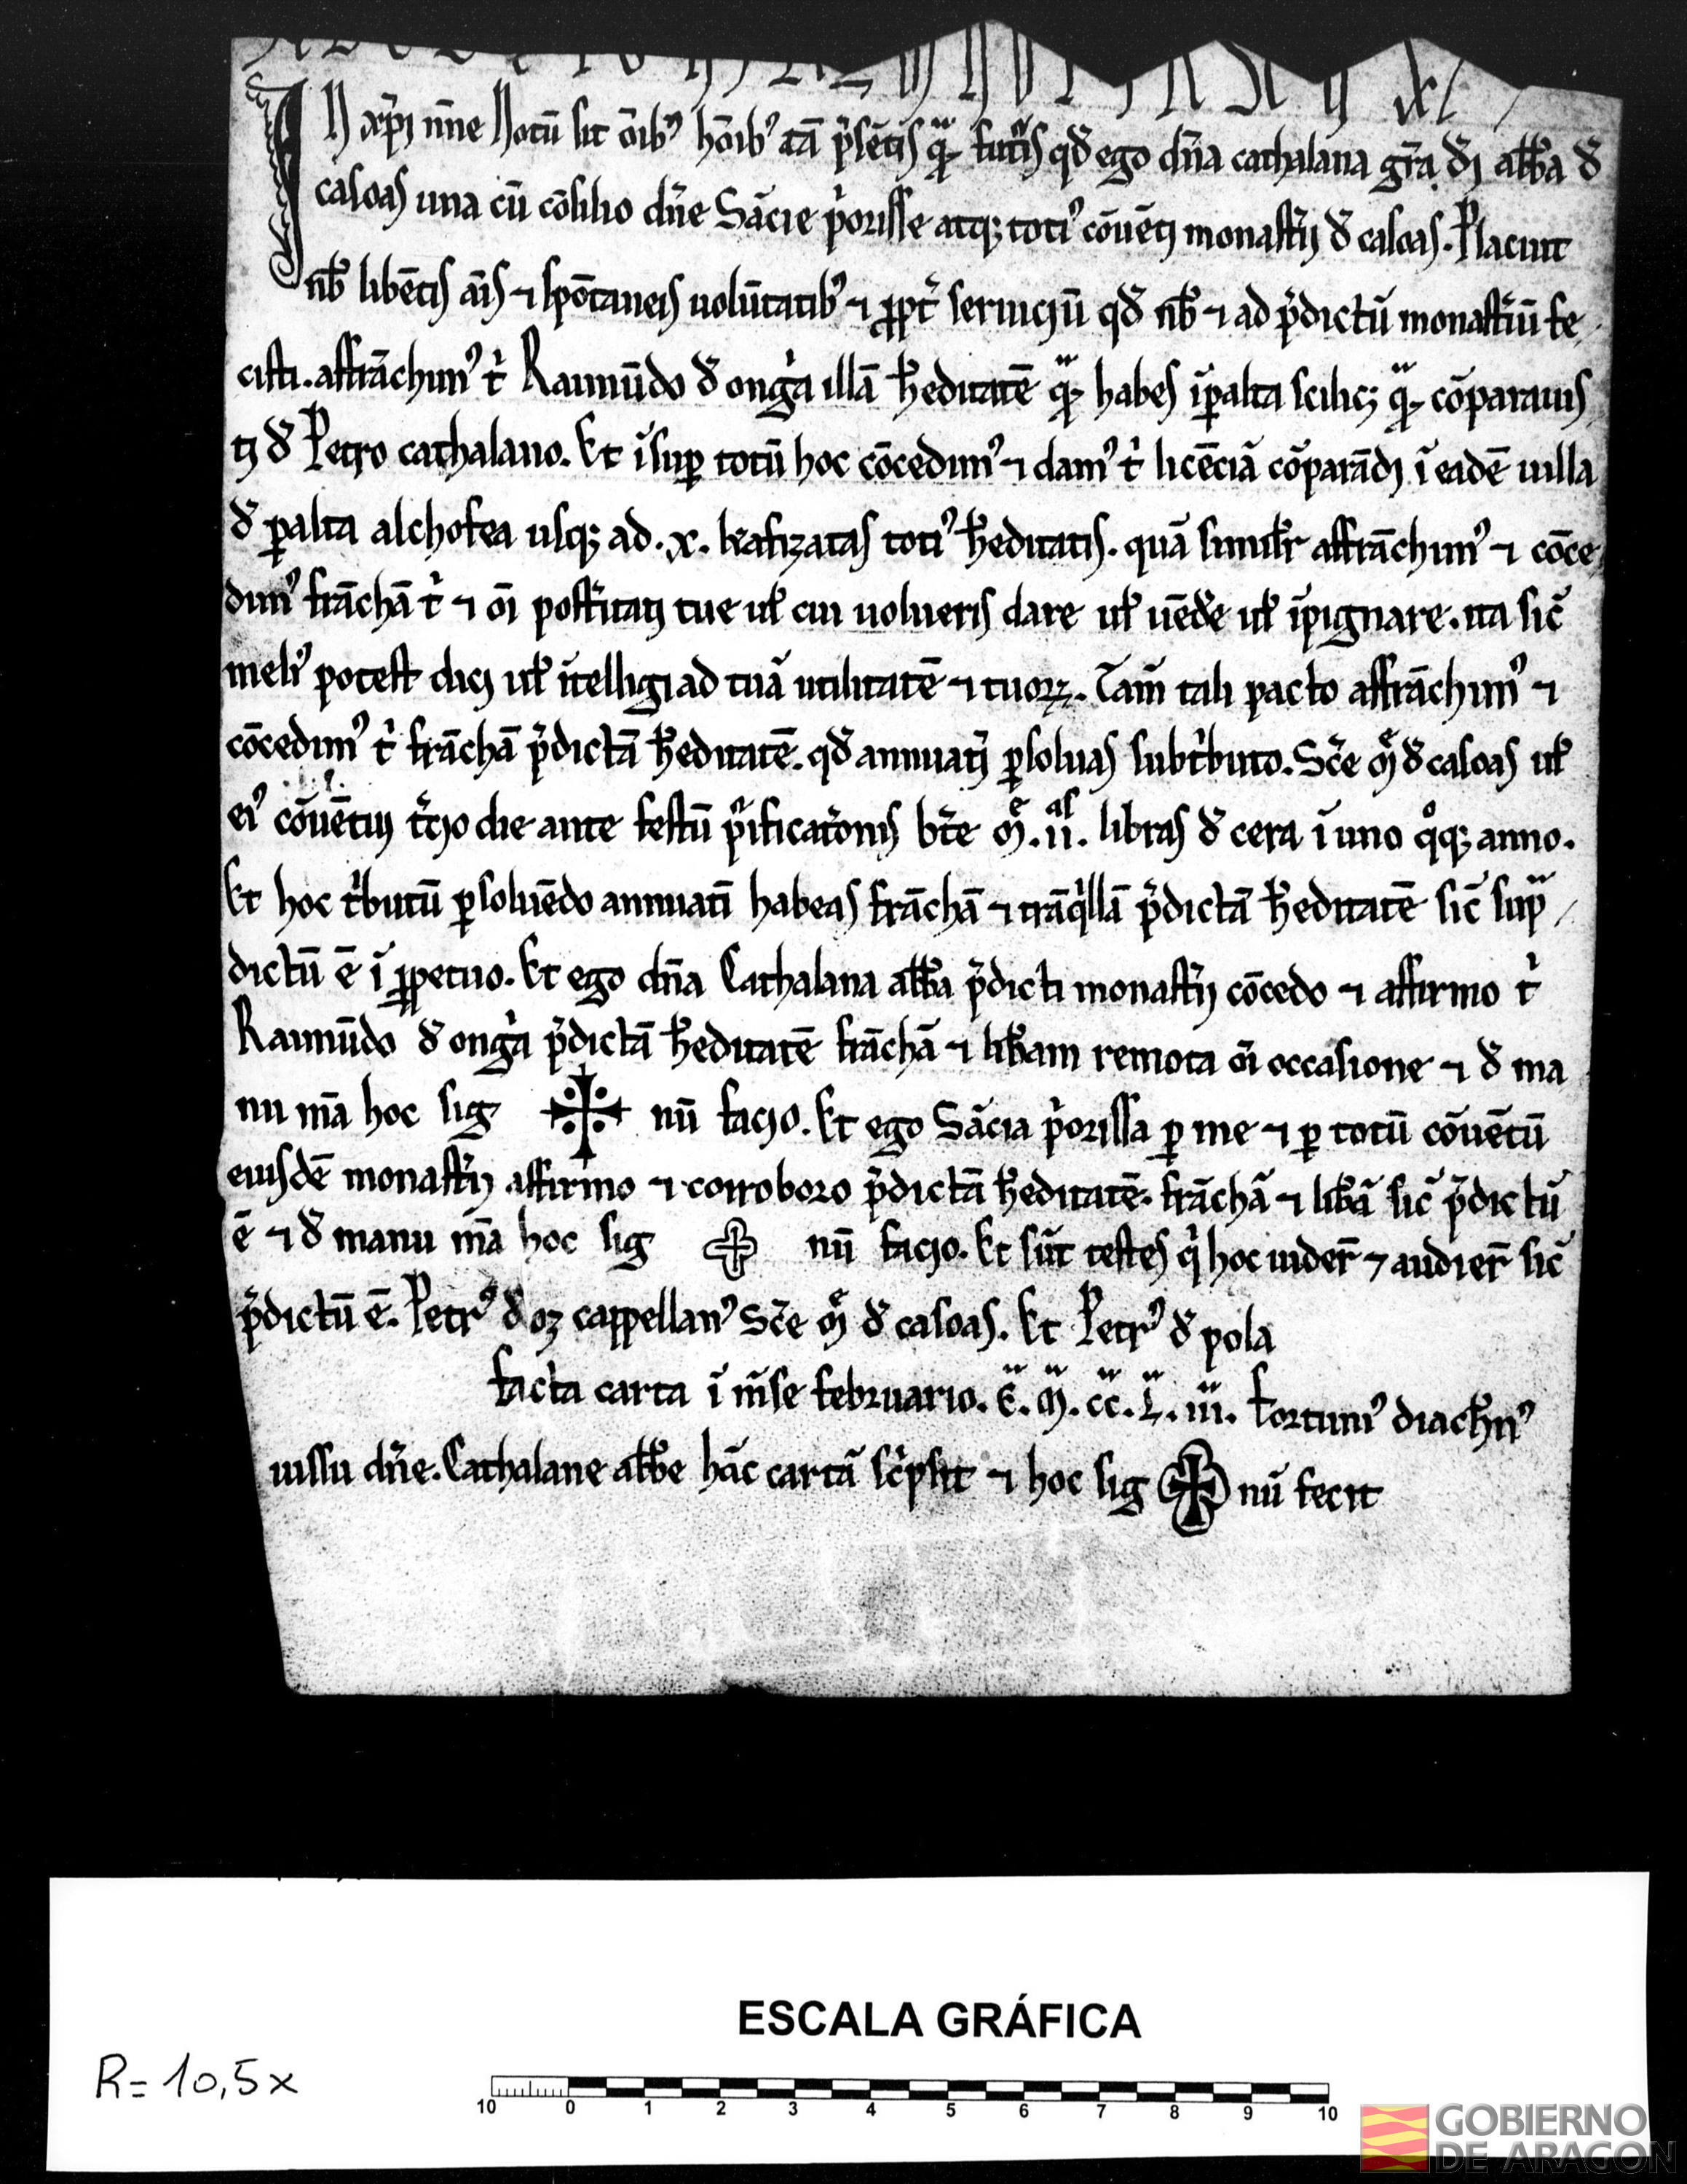 IN xp̄i nn̄e Notū sit om̄ibꝰ hōibꝰ tā p̄sētis qᵃꝫ fut᷑is qđ ego dn̄a cathalana gr̄a dı̄ abb̄a đ
casoas una cū cōsilio dn̄e Sācie pⁱorisse atqꝫ totiꝰ cōuētꝯ monast᷑ij đ casoas. Placuit
nb̄ libētis aīs ⁊ spōtaneis uolūtatibꝰ ⁊ ꝓpt᷑ seruiciū qđ nb̄ ⁊ ad p̄dictū monast᷑iū fe
cisti. affrāchimꝰ tⁱ Raimūdo đ ongᵃ illā h̄editatē qᵃꝫ habes ī ꝑalta scilicꝫ qᵃꝫ cōparauis
ti đ Petro cathalano. Et īsuꝑ totū hoc cōcedimꝰ ⁊ damꝰ tⁱ licēciā cōparādi ī eadē uilla
đ ꝑalta alchofea usqꝫ ad .x. kᵃfizatas totiꝰ h̄editatis. quā simil̄r affrāchimꝰ ⁊ cōce
dimꝰ frāchā tⁱ ⁊ oı̄ post᷑itati tue uł cui uolueris dare uł uēđe uł īpignare. ita sic̄
meliꝰ potest dici uł ītelligi ad tuā utilitatē ⁊ tuoꝝ. Tam̄ tali pacto affrāchimꝰ ⁊
cōcedimꝰ tⁱ frāchā p̄dictā h̄editatē. qđ annuatı̄ ꝑsoluas sub tⁱbuto. Sc̄e Mᵉ đ casoas uł
eiꝰ cōuētui t᷑cio die ante festū pⁱificatōnis bt̄e Mᵉ. ii.ᵃˢ libras đ cera ī uno qᵒqꝫ anno.
Et hoc tⁱbutū ꝑsoluēdo annuatī habeas frāchā ⁊ trāqⁱllā p̄dictā h̄editatē sic̄ supᵃ
dictū ē ī ꝑpetuo. Et ego dn̄a Cathalana abb̄a p̄dicti monast᷑ij cōcedo ⁊ affirmo tⁱ
Raimūdo đ ongᵃ p̄dictā h̄editatē frāchā ⁊ lib̄am remota oı̄ occasione ⁊ đ ma
nu m̄a hoc sig nū facio. Et ego Sācia pⁱorissa ꝑ me ⁊ ꝑ totū cōuētū
eiusdē monast᷑ij affirmo ⁊ corroboro p̄dictā h̄editatē. frāchā ⁊ lib̄ā sic̄ p̄dictū
ē ⁊ đ manu m̄a hoc sig nū facio. Et sūt testes qⁱ hoc uider̄ ⁊ audier̄ sic̄
p̄dictū ē. Petrꝰ đ oz cappellanꝰ Sc̄e Mᵉ đ casoas. Et Petrꝰ đ pola
facta carta ī m̄se februario. Eᵃ. Mᵃ. ccᵃ. Lᵃ. iiiᵃ. Fortuniꝰ diach̄nꝰ
iussu dn̄e. Cathalane abb̄e hāc cartā scⁱpsit ⁊ hoc sig nū fecit
ESCALA GRÁFICA
R=10,5x
10 0 1 2 3 4 5 6 7 8 9 10
GOBIERNO
DE ARAGON